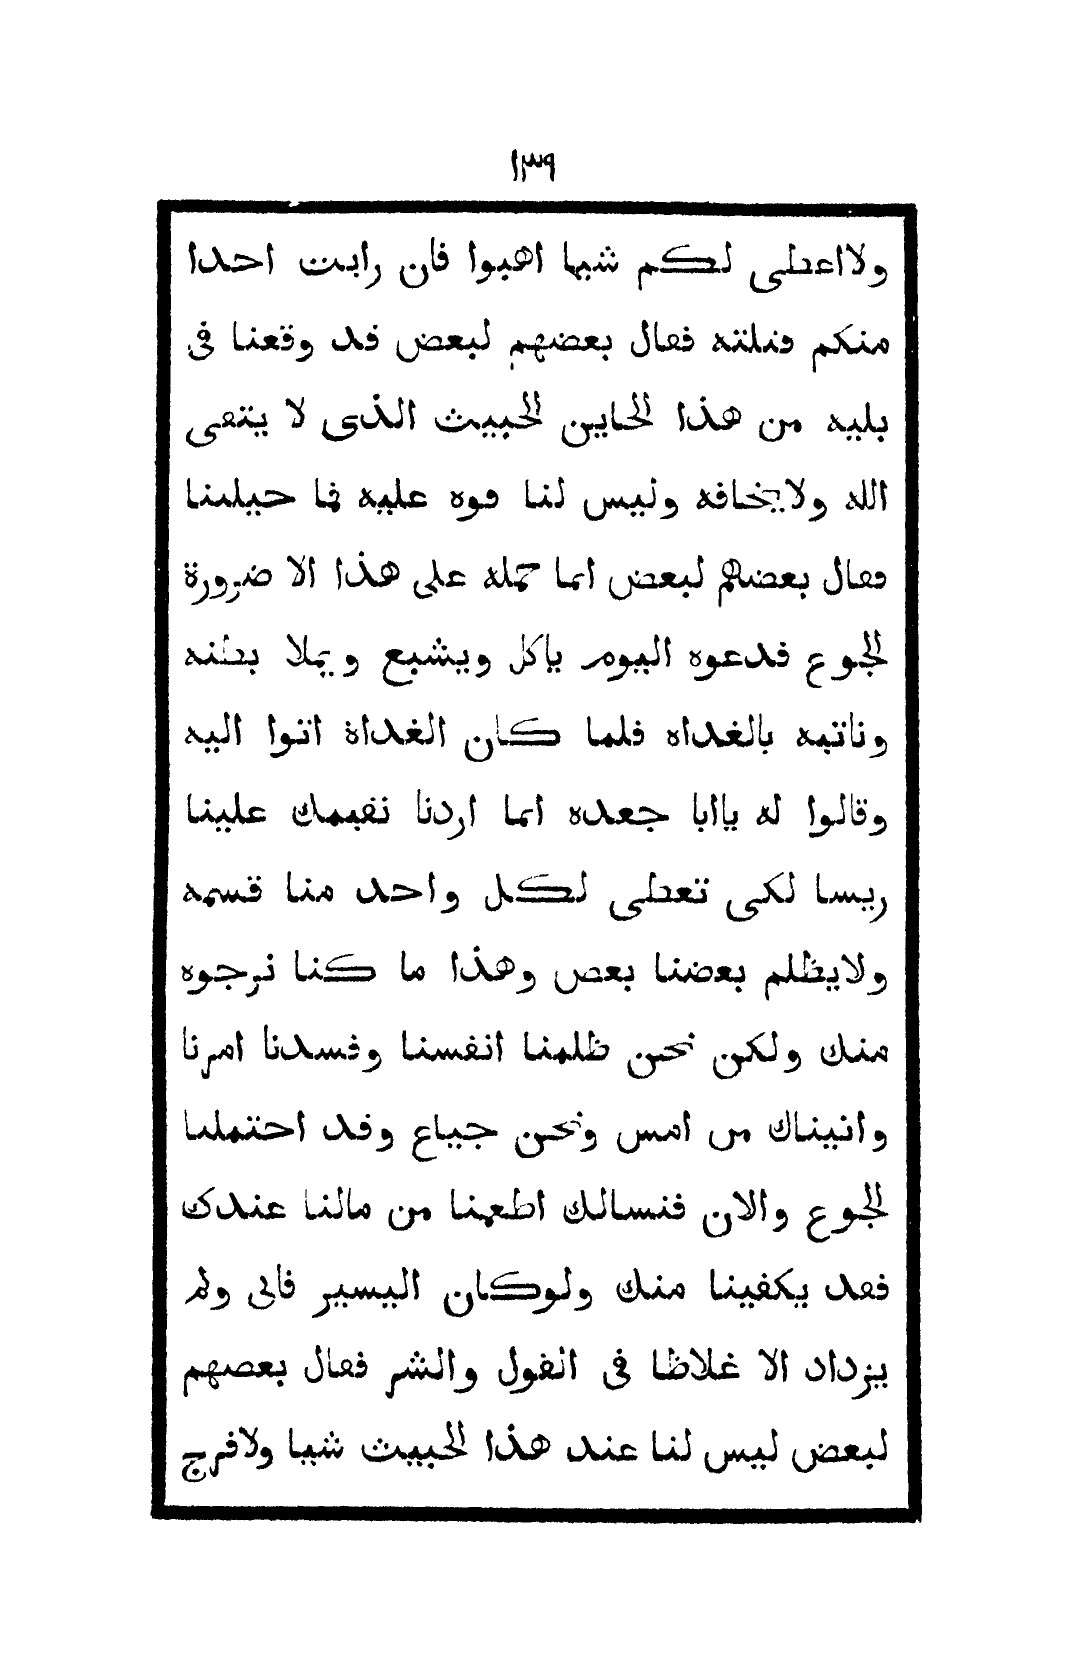 ١٣٩
ولااعطى لكم شيا اهبوا فان رايت احدا
منكم قتلته فقال بعضهم لبعض قد وقعنا فى
بليه من هذا الخاين الخبيث الذى لا يتقى
الله ولايخافه وليس لنا قوه عليه فما حيلتنا
فقال بعضهم لبعض انما حمله على هذا الا ضرورة
الجوع فدعوه اليوم ياكل ويشبع ويملا بطنه
وناتيه بالغداه فلما كان الغداة اتوا اليه
وقالوا له ياابا جعده انما اردنا نقيمك علينا
ريسا لكى تعطى لكل واحد منا قسمه
ولايظلم بعضنا بعض وهذا ما كنا نرجوه
منك ولكن نحن ظلمنا انفسنا وفسدنا امرنا
واتيناك من امس ونحن جياع وقد احتملنا
الجوع والان فنسالك اطعمنا من مالنا عندك
فقد يكفينا منك ولوكان اليسير فابى ولم
يزداد الا غلاظا فى القول والشر فقال بعضهم
لبعض ليس لنا عند هذا الخبيث شيا ولافرج